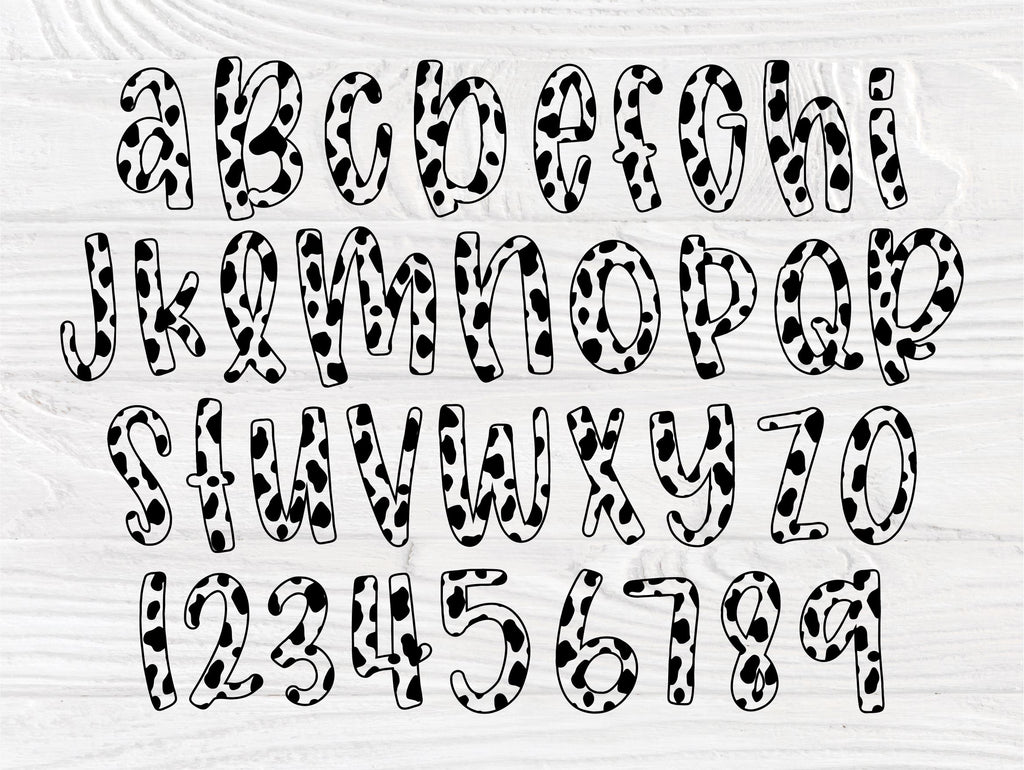 aBcDefGhi
JklmnOPQR
stuvwxyz0
123456789